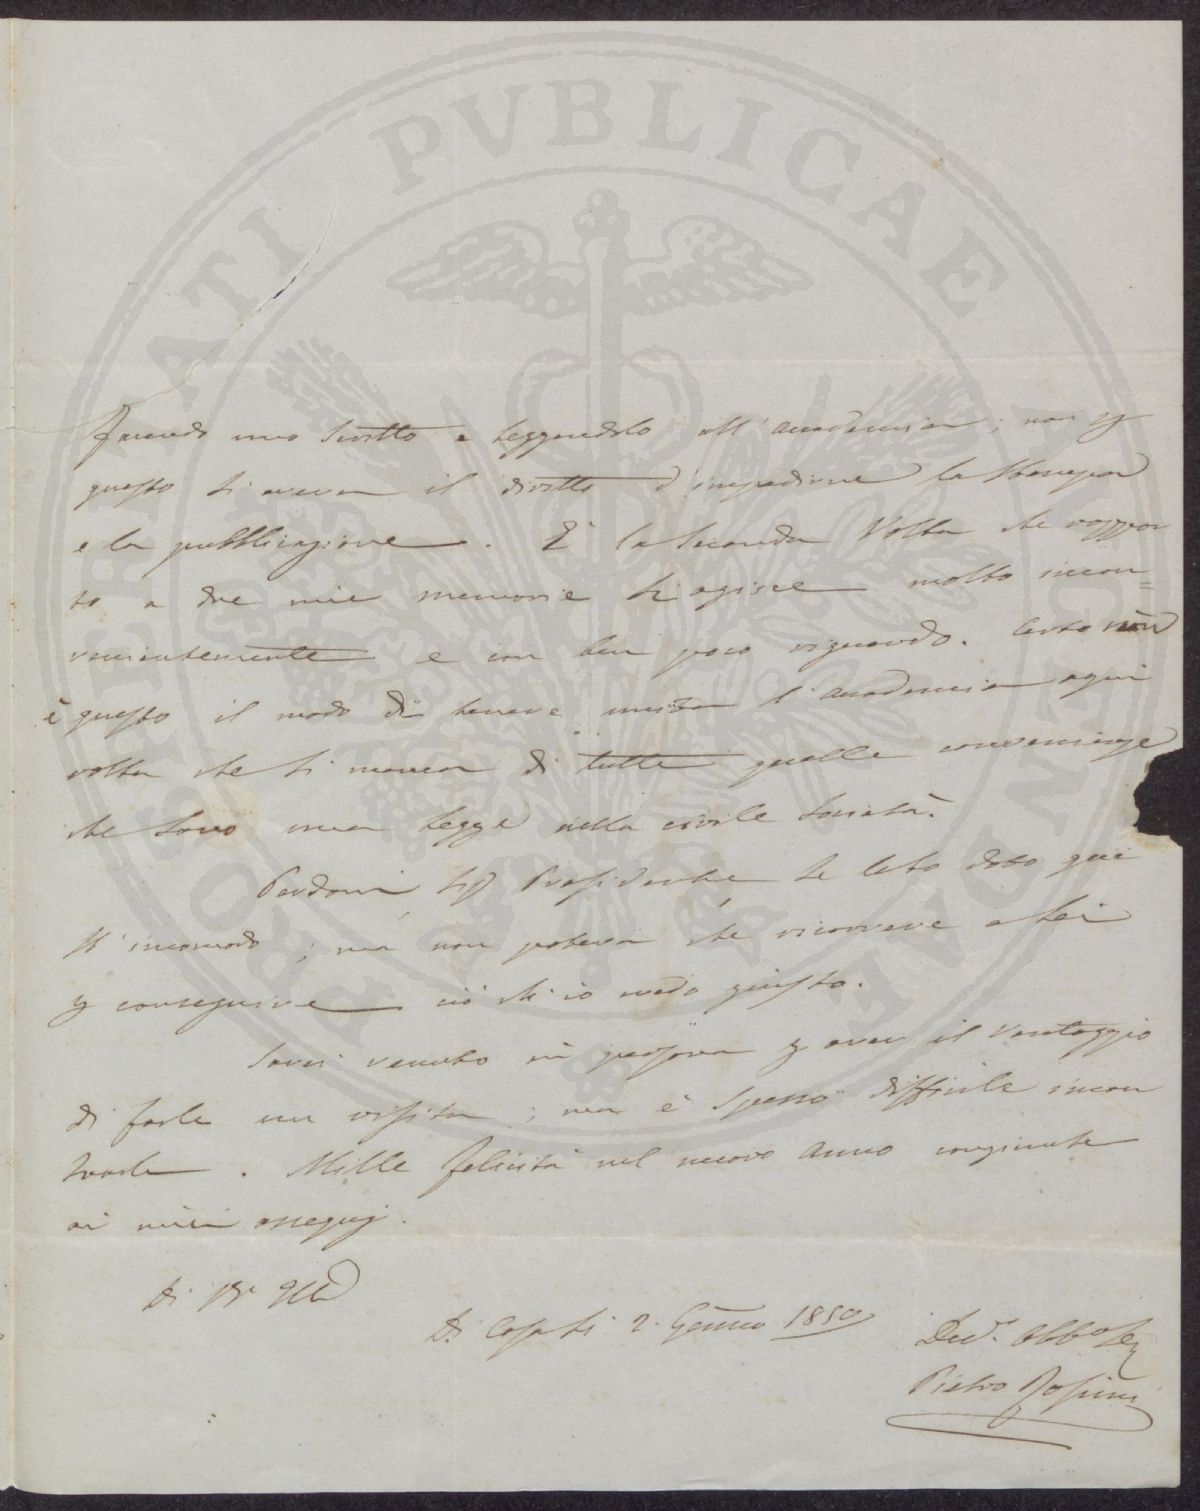 PROSPERITATI PVBLICAE AVGENDAE
facendo uno scritto e leggendolo all'accademia; non p
questo si aveva il diritto d'impedirne la stampa
e la pubblicazione. È la seconda volta che rappor
to a due mie memorie si agisce molto incon=
venientemente e con ben poco riguardo. Certo non
è questo il modo di tenere unita l'accademia ogni
volta che si manca di tutte quelle convenienze
che sono una legge nella civile società.
Perdoni Sig Presidente se le ho dato que
st'incomodo; ma non poteva che ricorrere a Lei
p conseguire ciò ch'io credo giusto.
Sarei venuto in persona p aver il vantaggio
di farle una visita; ma è spesso difficile incon
trarla. Mille felicità nel nuovo anno congiunte
ai miei ossequj.
Di Casa li 2. Genno 1850
Dev. Obb Se
Pietro